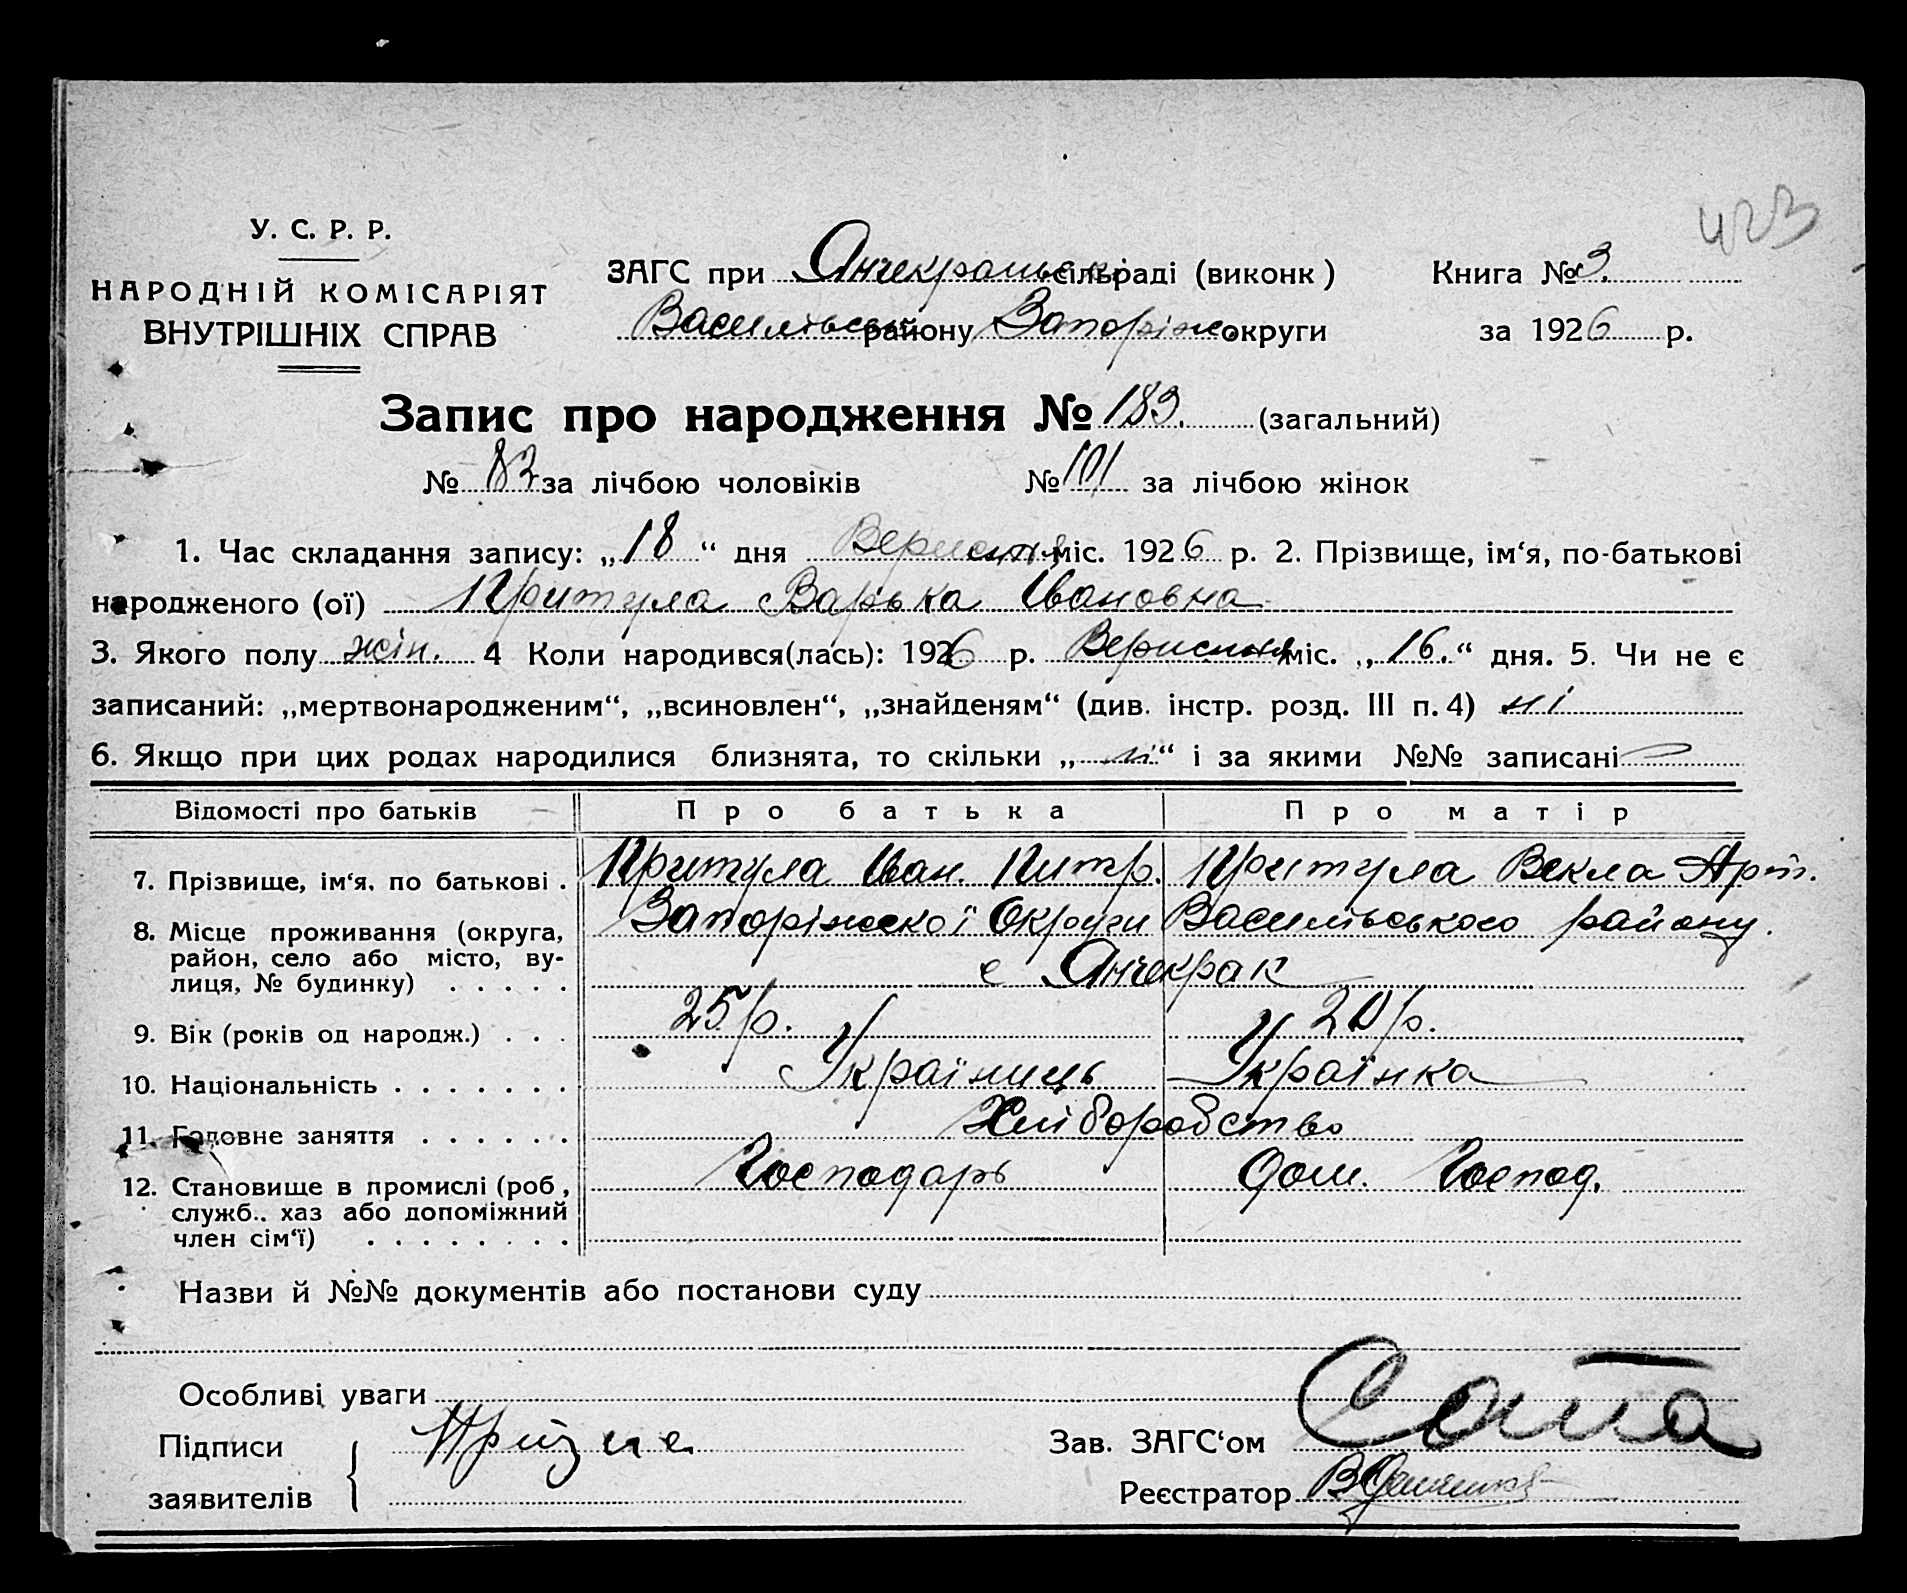 423
У. С. Р. Р.
НАРОДНІЙ КОМІСАРІЯТ
ВНУТРІШНІХ СПРАВ
ЗАГС при Янчекрацькі сільраді (виконк) Книга № 3.
Василівськ району Запоріж. округи за 1926 р.
Запис про народження № 183. (загальний)
№ 82 за лічбою чоловіків № 101 за лічбою жінок
1. Час складання запису: „18“ дня Вересня міс. 1926 р. 2. Прізвище, ім‘я, по-батькові
народженого (ої) Притула Варька Івановна
3. Якого полу жін. 4 Коли народився(лась): 1926 р. Вересня міс. „16.“ дня. 5. Чи не є
записаний: „мертвонародженим“, „всиновлен“, „знайденям“ (див. інстр. розд. III п. 4) ні
6. Якщо при цих родах народилися близнята, то скільки „ні“ і за якими №№ записані
Відомості про батьків Про батька Про матір
7. Прізвище, ім‘я, по батькові . Притула Іван. Питр. Притула Векла Арт.
8. Місце проживання (округа, район, село або місто, ву-
лиця, № будинку) Запоріжської Округи Василівського району.
с Янчекрак
9. Вік (років од народж.) 25 р. 20 р.
10. Національність Українець Українка
11. Головне заняття Хліборобство
12. Становище в промислі (роб, Господарь Дом. Господ.
служб., хаз або допоміжний
член сім‘ї)
Назви й №№ документів або постанови суду
Особливі уваги
Підписи
заявителів
Зав. ЗАГС‘ом
Реєстратор